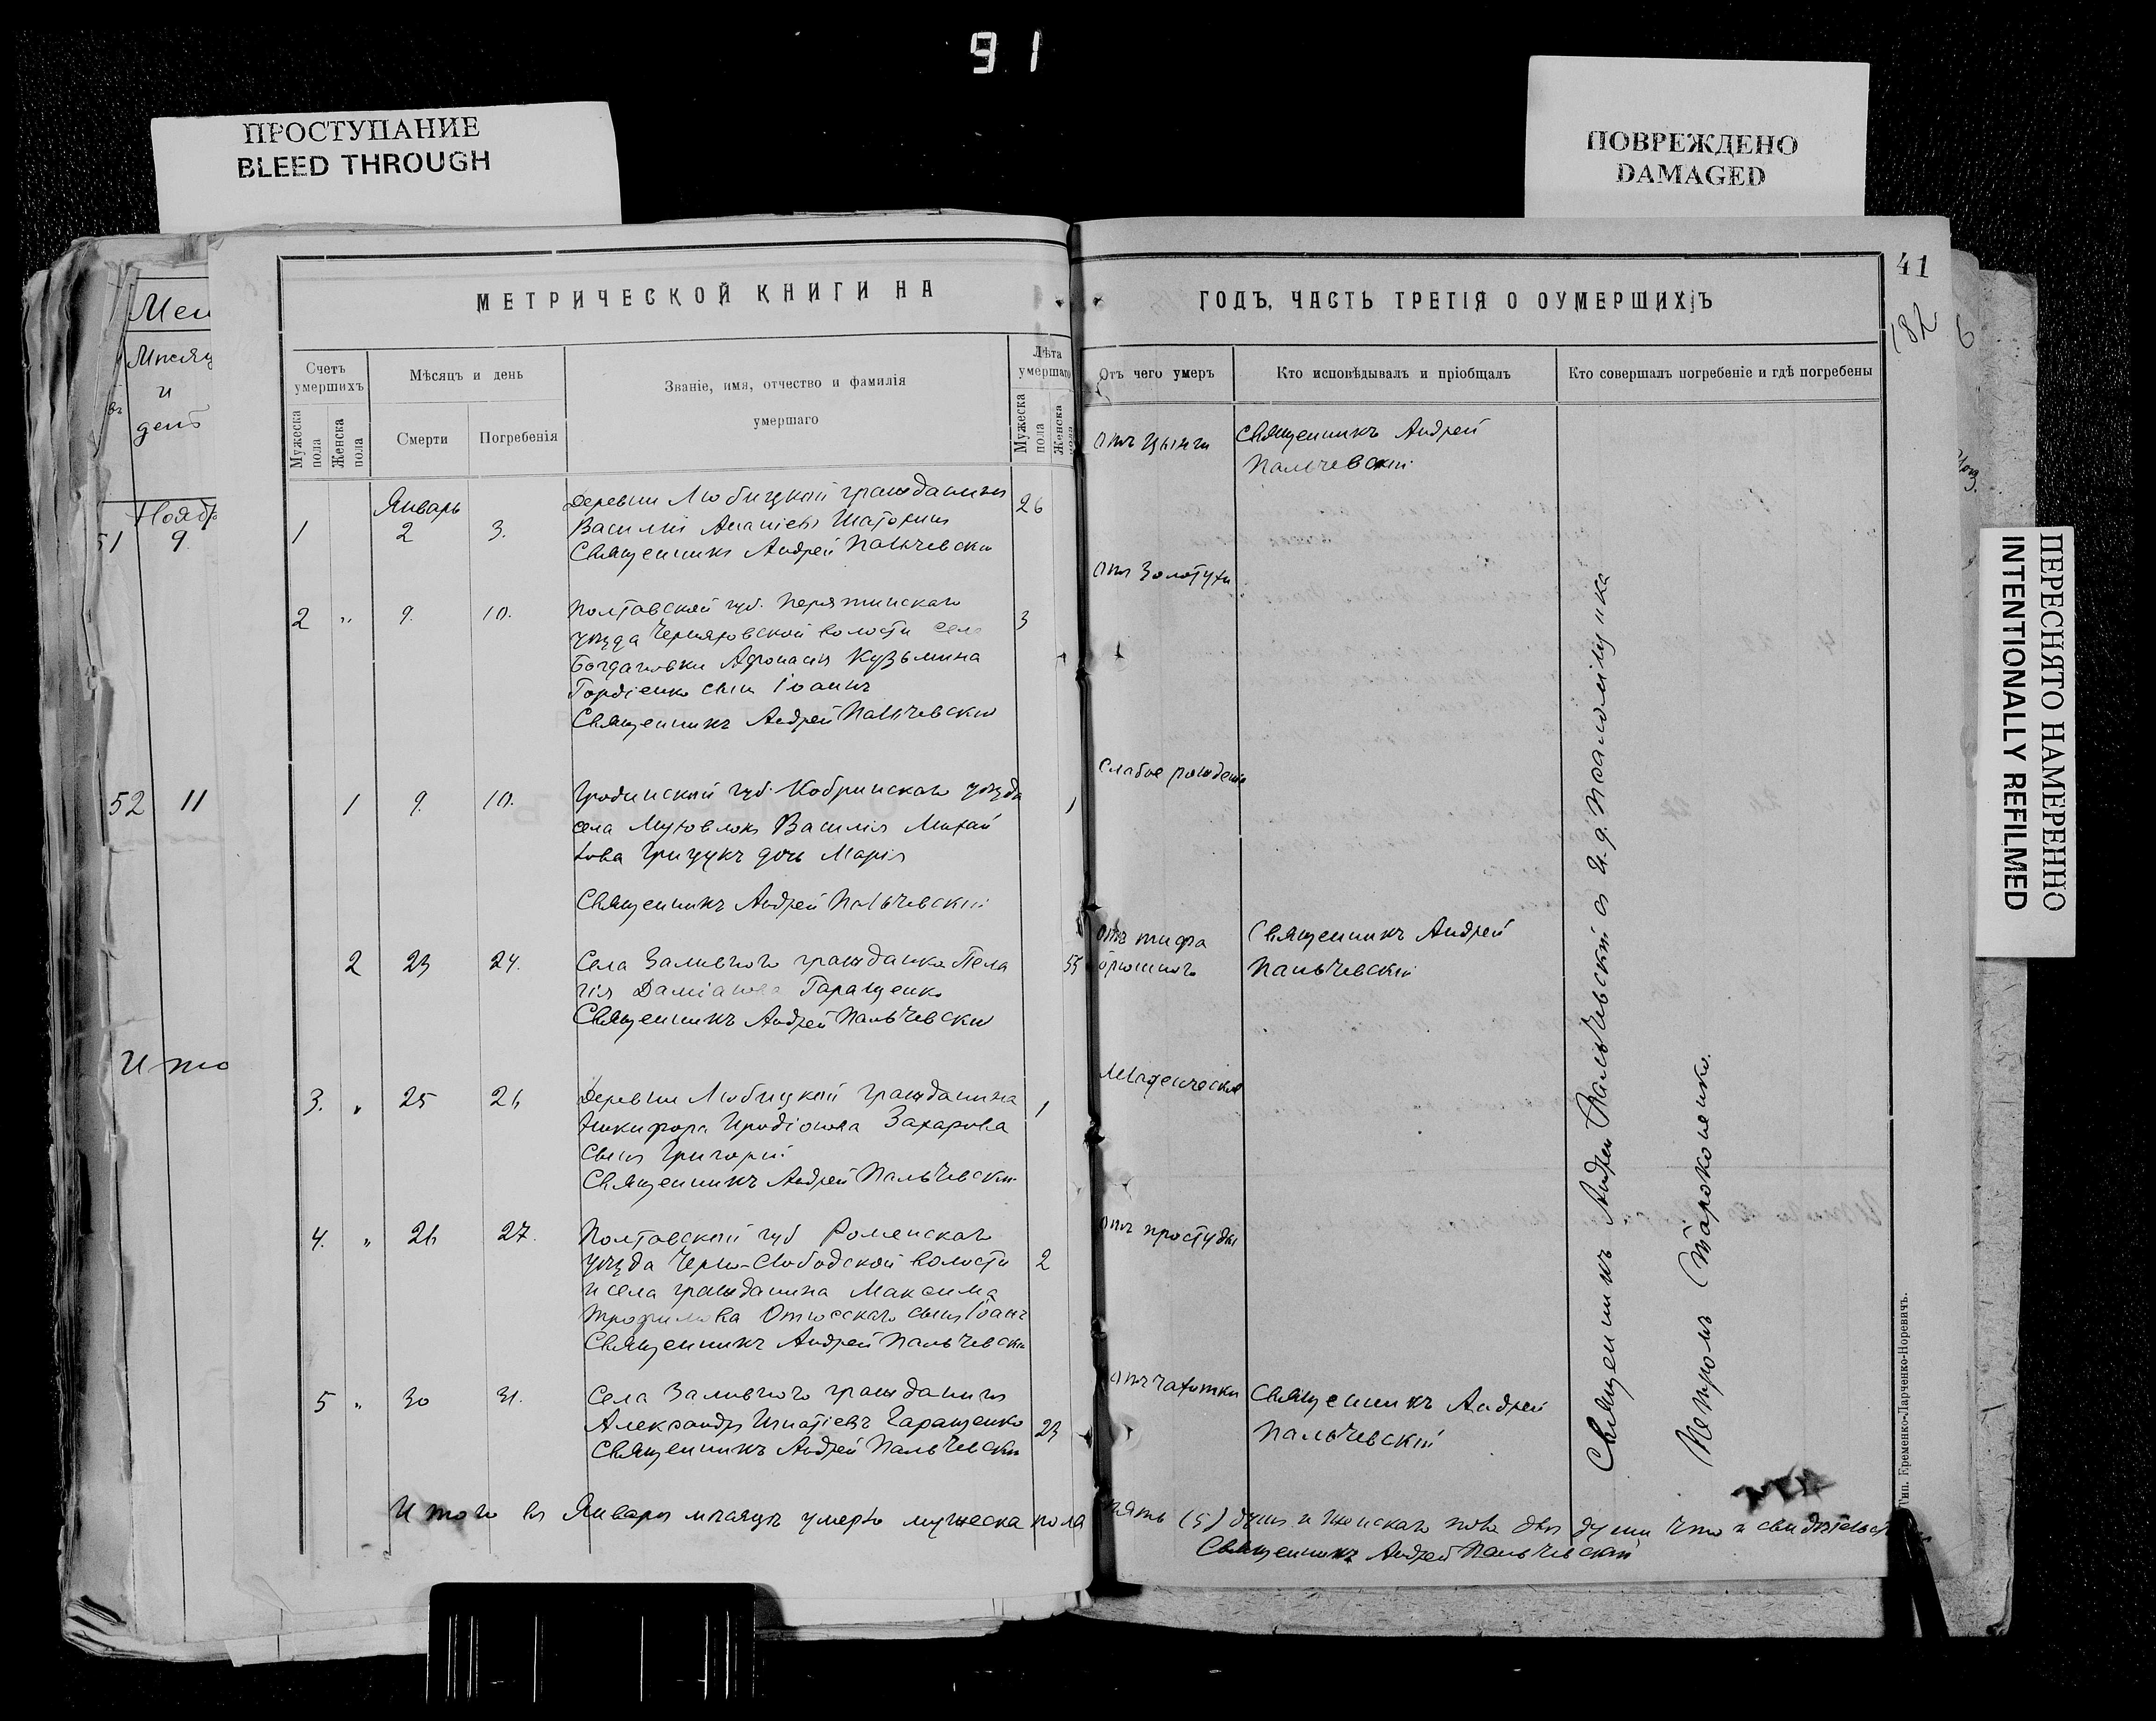 91
ПРОСТУПАНИЕ
BLEED THROUGH
ПОВРЕЖДЕНО
DAMAGED
ПЕРЕСНЯТО НАМЕРЕННО
INTENTIONALLY REFILMED
41
182
6
Мѣсяц
и
день
Нояб
51 9
52 11
Ито
МЕТРИЧЕСКОЙ КНИГИ НА
ГОДЪ, ЧАСТЬ ТРЕТІЯ О ОУМЕРШИХЪ
Счетъ умершихъ
Мужеска пола
Женска пола
Мѣсяцъ и день
Смерти
Погребенія
Званіе, имя, отчество и фамилія
умершаго
Лѣта умершаго
Мужеска пола
Женска пола
Отъ чего умеръ
Кто исповѣдывалъ и пріобщалъ
Кто совершалъ погребеніе и гдѣ погребены
Январь
1 2 3. Деревни Любицкой гражданинъ 26
Василій Ананіевъ
Священникъ Андрей Пальчевскій
отъ цынги
Священникъ Андрей
Пальчевскій
2 " 9. 10. Полтавской губ. Пирятинскаго 3
уѣзда Черняховской волости села
Богдановки Афонасія Кузьмина
Гордіенко сынъ Іоаннъ
Священникъ Андрей Пальчевскій
отъ Золотухи
1 9. 10. Гродненской губ. Кобринскаго уѣзда 1
села Василія Михай
лова Грицукъ дочь Марія
Священникъ Андрей Пальчевскій
Слабое рожденіе
2 23 24. Села Заливного гражданка Пела 55
гія Даміанова Гаращенко
Священникъ Андрей Пальчевскій
отъ тифа
брюшного
Священникъ Андрей
Пальчевскій
3. " 25 26 Деревни Любицкой гражданина 1
Никифора Иродіонова Захарова
сынъ Григорій
Священникъ Андрей Пальчевскій
Младенческая
4. " 26 27. Полтавской губ Роменскаго
уѣзда Слободской волости 2
и села гражданина Максима
Трофимова сынъ Іоаннъ
Священникъ Андрей Пальчевскій
отъ простуды
5 " 30 31. Села Заливного гражданинъ
Александръ Игнатіевъ Гаращенко 23
Священникъ Андрей Пальчевскій
отъ чахотки
Священникъ Андрей
Пальчевскій
Священникъ Андрей Пальчевскій съ И. д. Псаломщика
Петромъ
Итого въ Январѣ мѣсяцѣ умерло мужеска пола пять (5) душъ и женскаго пола двѣ души что и свидѣтельст
Священникъ Андрей Пальчевскій
Тип. Еременко-Ларченко-Норевичъ.